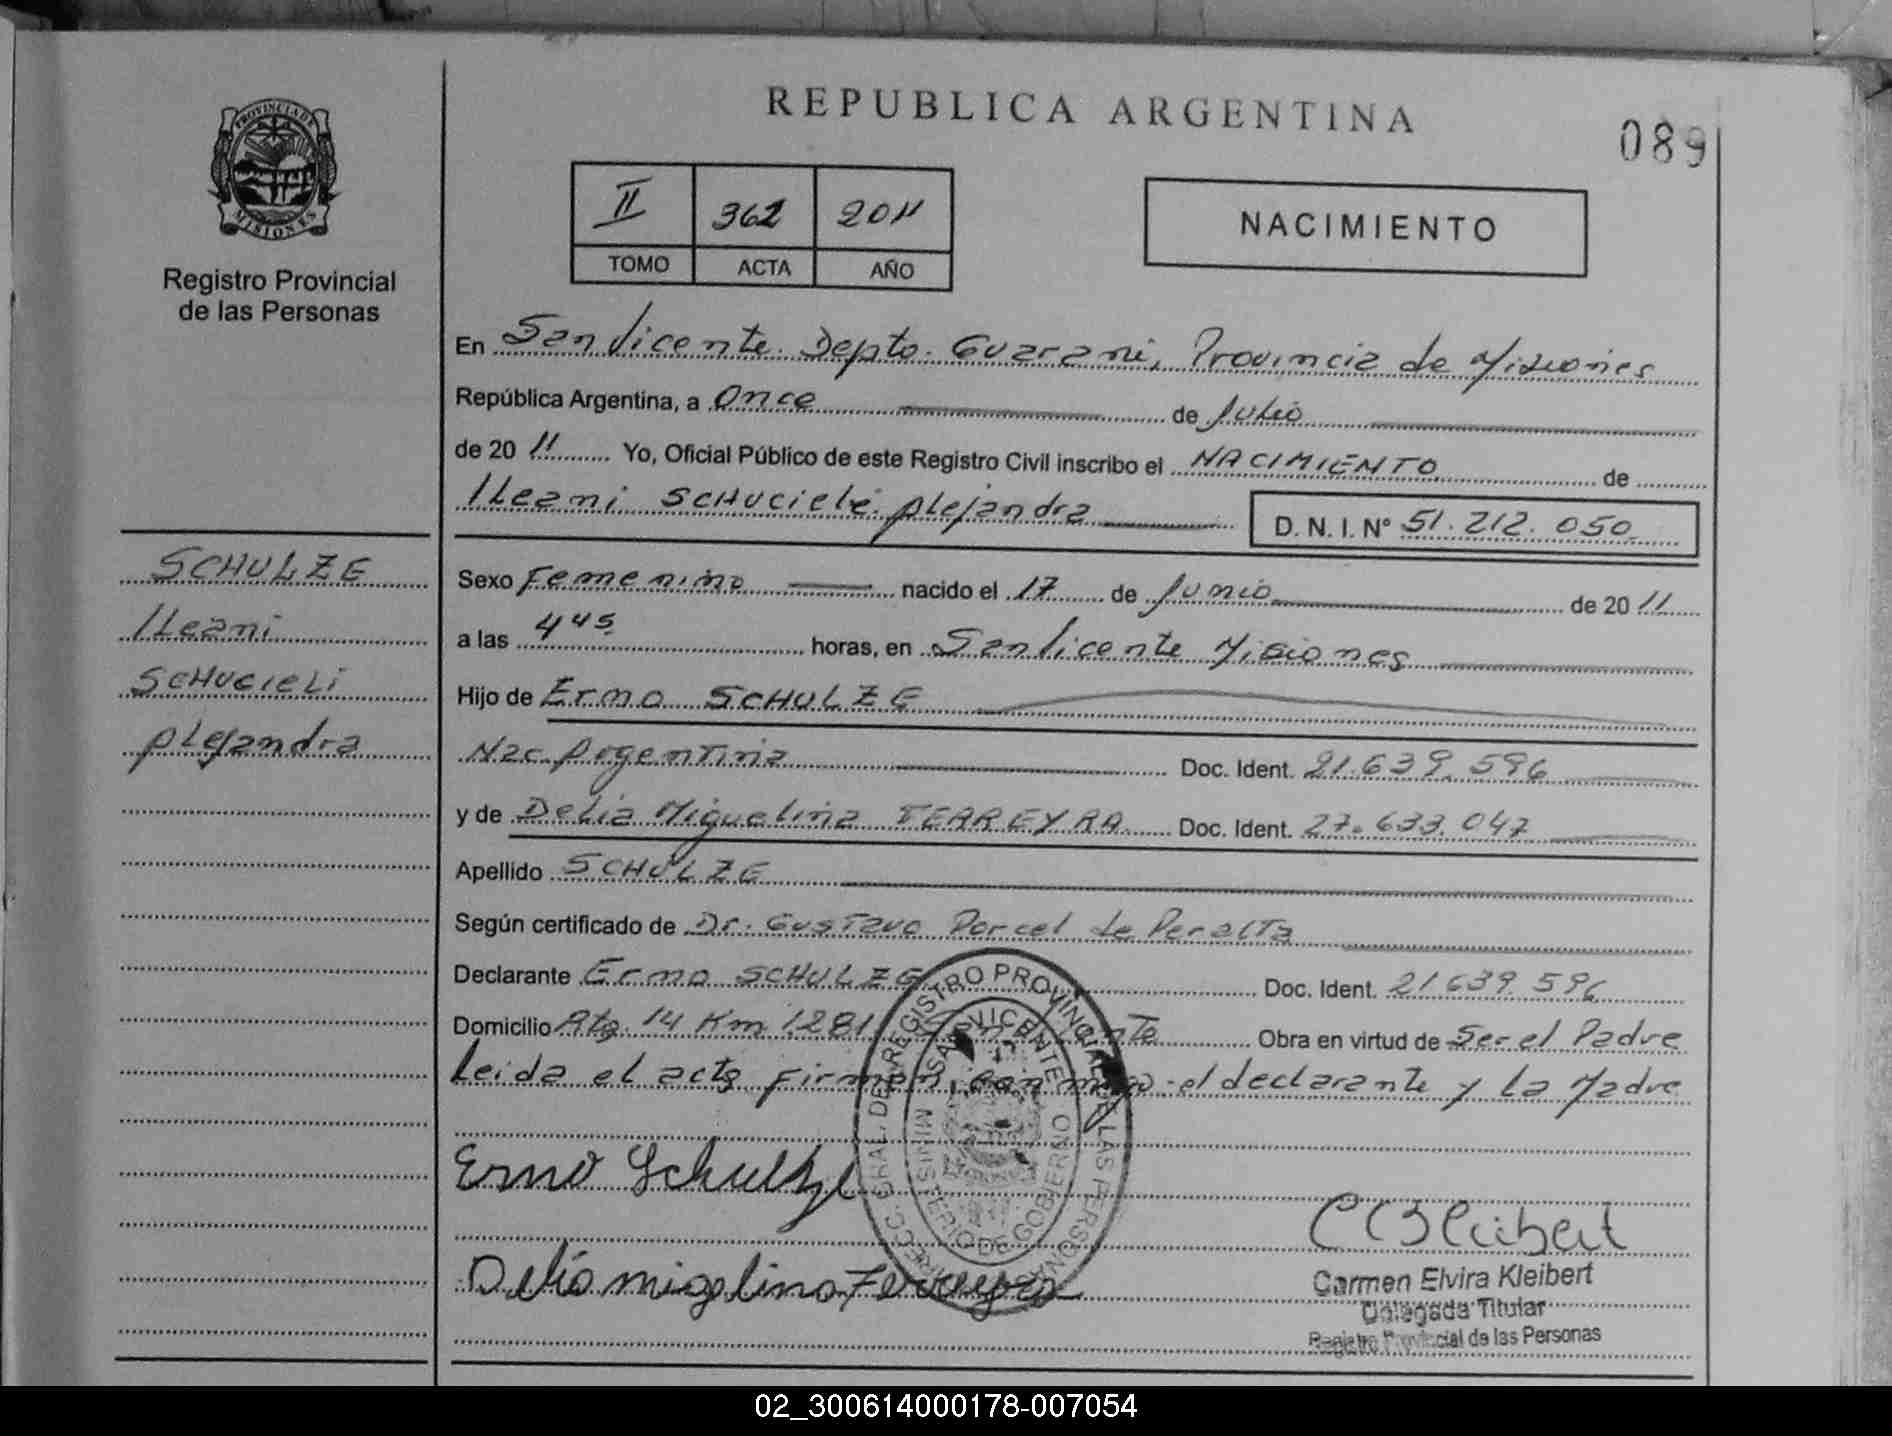 REPUBLICA ARGENTINA
089
PROVINCIA DE
MISIONES
Registro Provincial
de las Personas
II 362 2011
TOMO ACTA AÑO
NACIMIENTO
En San Vicente. Depto. Guarani, Provincia de Misiones
República Argentina, a Once de Julio
de 20 11 Yo, Oficial Público de este Registro Civil inscribo el NACIMIENTO de
Ileani SCHUCIELE Alejandra
D. N. I. Nº 51.212.050
SCHULZE
Ileani
SCHUCIELI
Alejandra
Sexo Femenino nacido el 17 de Junio de 20 11
a las 4 45 horas, en San Vicente Misiones
Hijo de Erno SCHULZE
Nac. Argentina Doc. Ident. 21.639.596
y de Delia Miguelina FERREYRA Doc. Ident. 27.633.047
Apellido SCHULZE
Según certificado de Dr. Gustavo Porcel de Peralta
Declarante Erno SCHULZE Doc. Ident. 21 639 596
Domicilio Rta. 14 Km 1281 San Vicente Obra en virtud de Ser el Padre
Leida el acta firman conmigo el declarante y La Madre
REGISTRO PROVINCIAL DE LAS PERSONAS
SAN VICENTE
MINISTERIO DE GOBIERNO
Erno Schultze
Delia migelina Ferreyra
Carmen Elvira Kleibert
Delegada Titular
Registro Provincial de las Personas
02_300614000178-007054